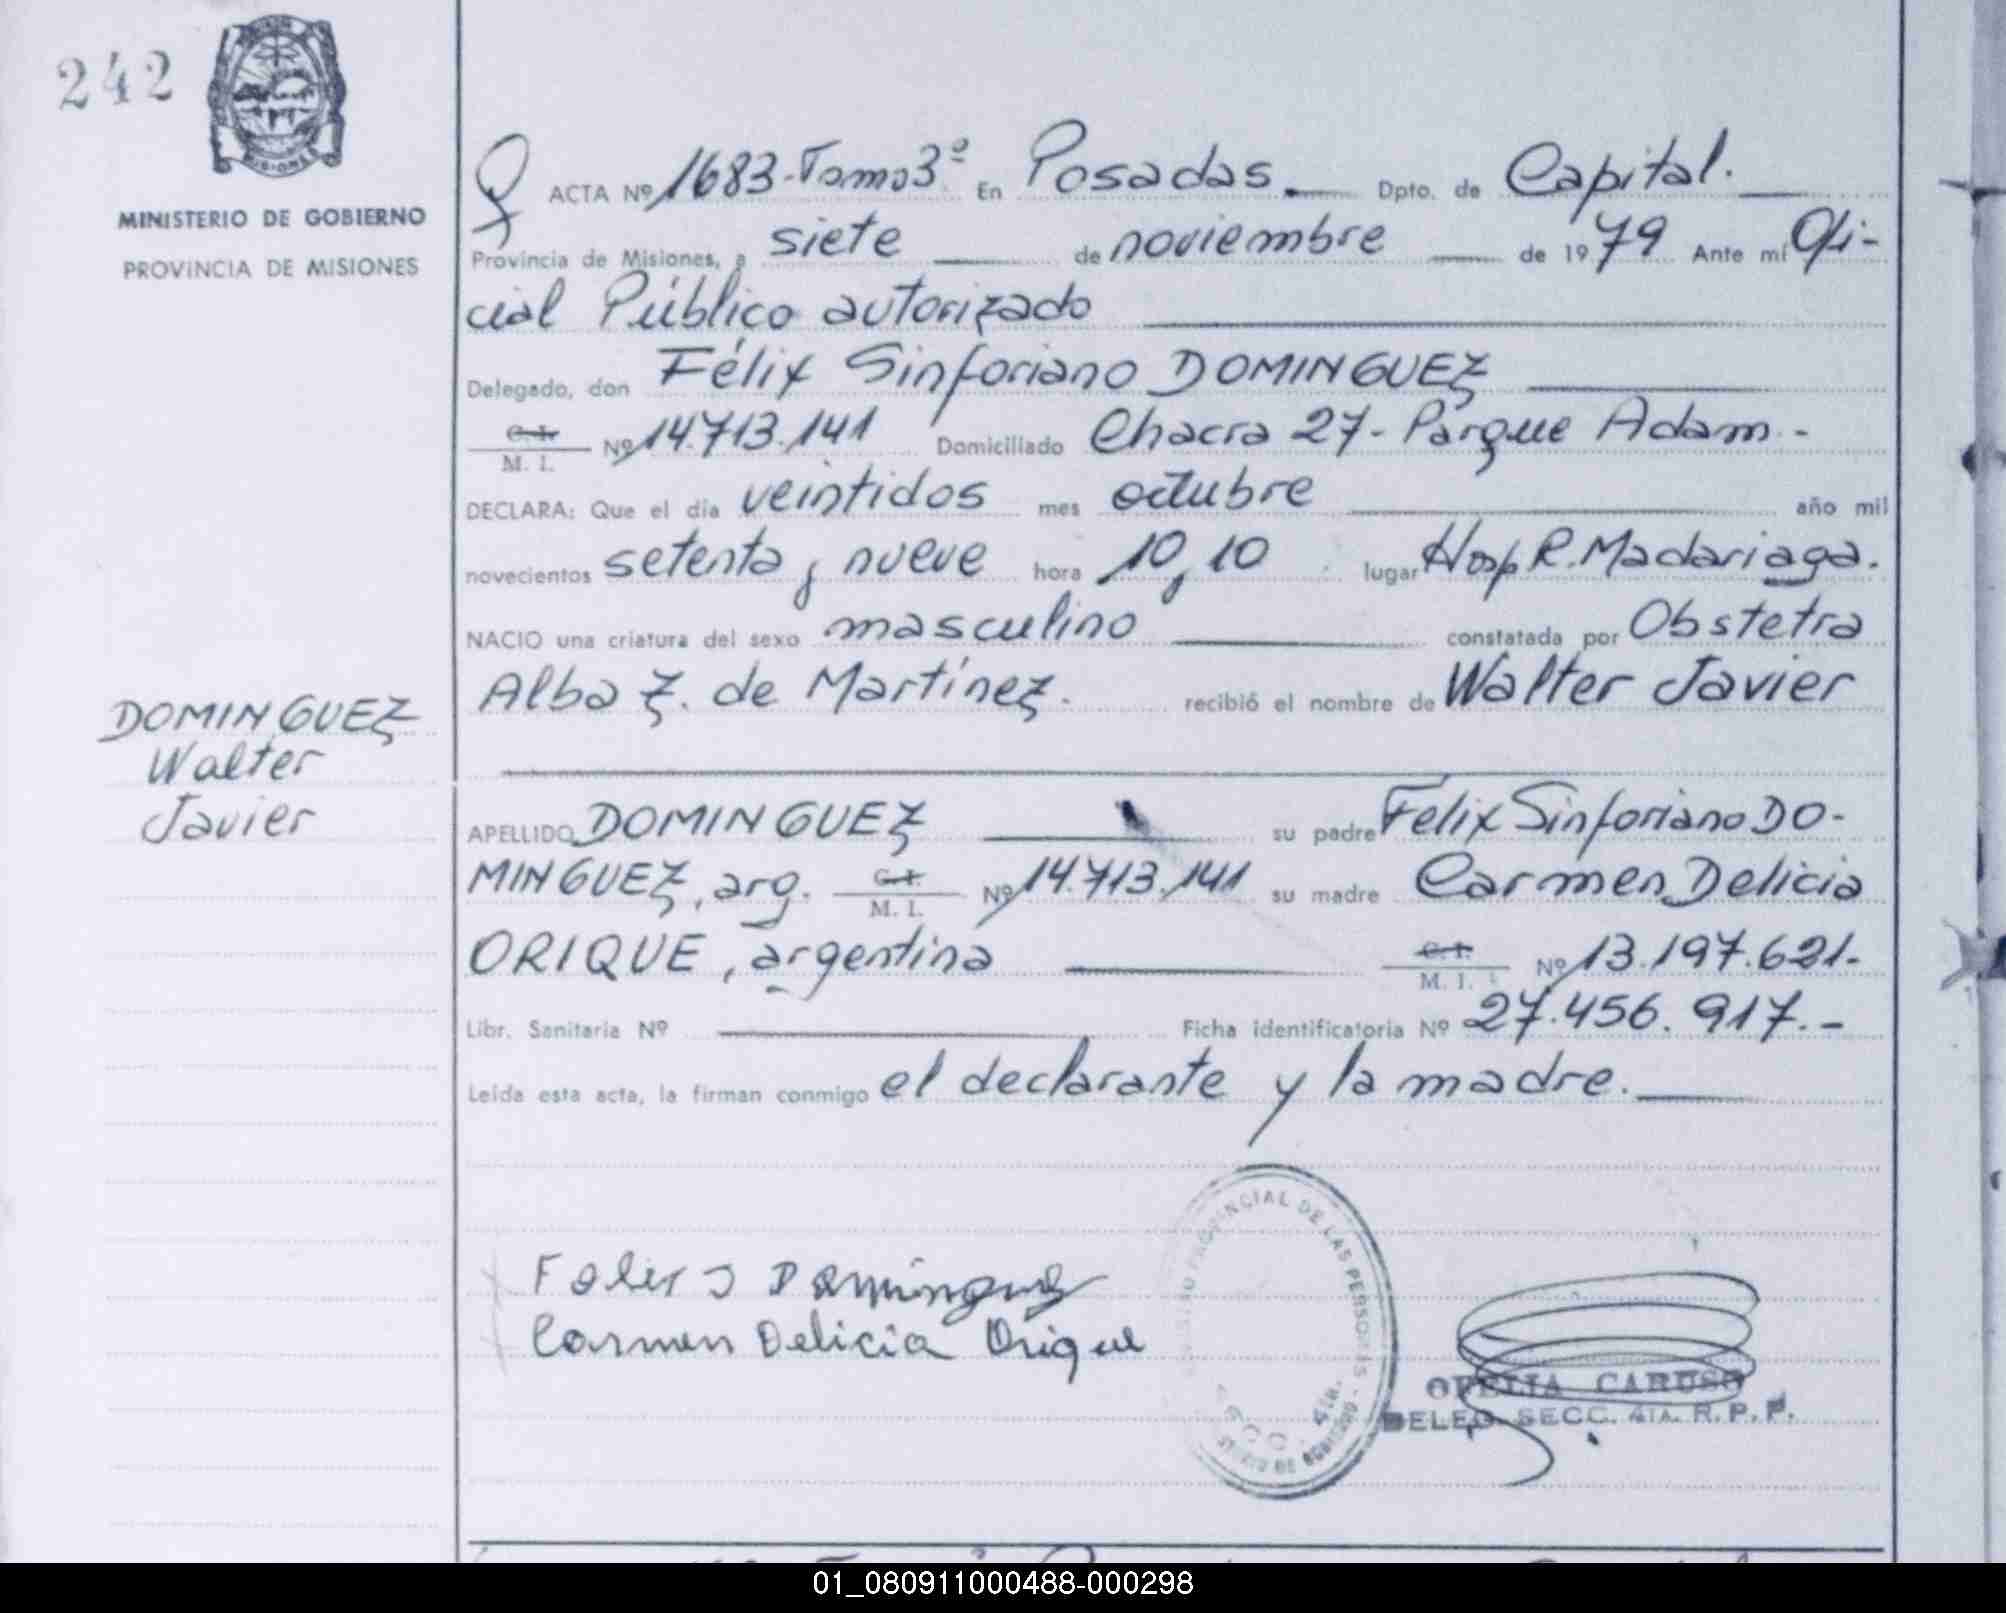 242
MISIONES
MINISTERIO DE GOBIERNO
PROVINCIA DE MISIONES
ACTA Nº 1683-Tomo 3º En Posadas. Dpto. de Capital.
Provincia de Misiones, a siete de noviembre de 1979 Ante mí Ofi-
cial Público autorizado
Delegado, don Félix Sinforiano DOMINGUEZ
C. I.
M. I. Nº 14.713.141 Domiciliado Chacra 27- Parque Adam.-
DECLARA: Que el día veintidos mes octubre año mil
novecientos setenta y nueve hora 10,10 lugar Hosp R. Madariaga.
NACIO una criatura del sexo masculino constatada por Obstetra
Alba Z. de Martínez. recibió el nombre de Walter Javier
DOMINGUEZ
Walter
Javier
APELLIDO DOMINGUEZ su padre Felix Sinforiano DO-
MINGUEZ, arg. C. I. M. I. Nº 14.713.141 su madre Carmen Delicia
ORIQUE, argentina C. I. M. I. Nº 13.197.621.-
Libr. Sanitaria Nº Ficha identificatoria Nº 27.456.917.-
Leída esta acta, la firman conmigo el declarante y la madre.
Felix S Dominguez
Carmen Delicia Orique
PROVINCIAL DE LAS PERSONAS
SECC. 4ta.
OFELIA CARUSO
DELEG. SECC. 4TA. R. P. P.
01_080911000488-000298